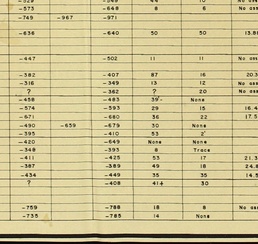 -529 -549 44 10 No ass
-573 -648 8 8 No ass
-749 -967 -971
-636 -640 50 50 13.80
-447 -502 11 11 No ass
-382 -407 87 16 20.3
-316 -349 13 12 No ass
? -362 ? 20 No ass
-458 -483 39- None
-574 -593 29 15 16.4
-671 -680 36 22 17.5
-490 -659 -679 30 None
-395 -410 53 2'
-420 -649 None None
-348 -393 8 Trace
-411 -425 53 17 21.3
-387 -389 49 18 24.8
-434 -449 35 35 14.5
? -408 41+ 30
-759 -788 18 8 No ass
-735 -785 14 None